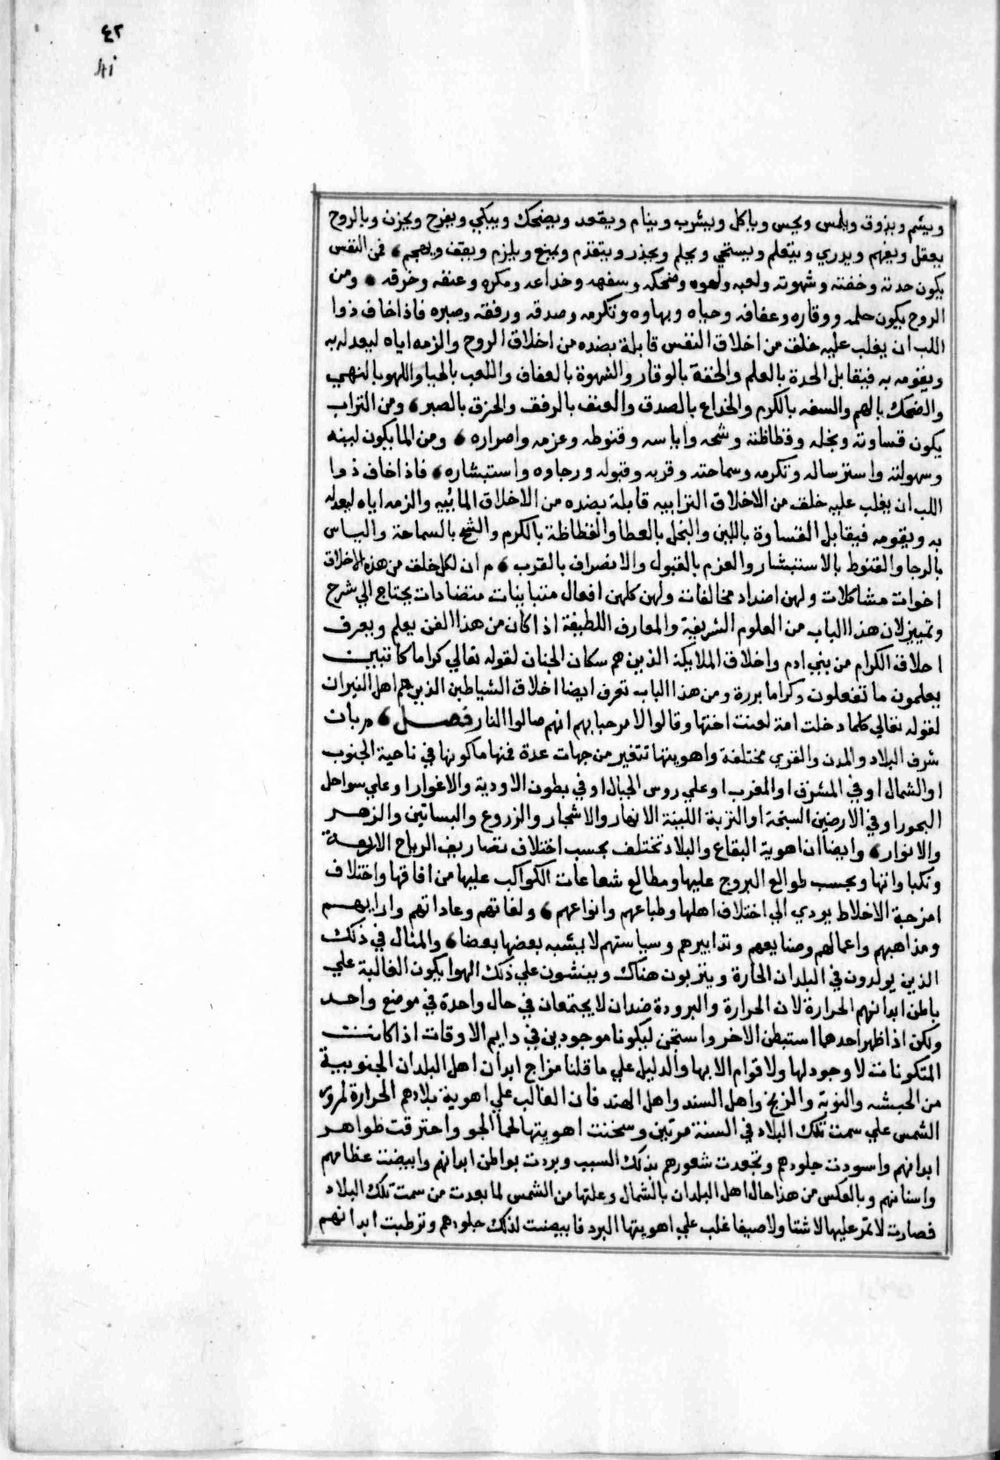 ٤٢
41
ويشم ويذوق ويلمس ويحس وياكل ويشرب وينام ويقعد ويضحك ويبكي ويفرح ويحزن وبالروح
يعقل ويفهم ويدري ويتعلم ويستحي ويحلم ويحذر ويتقدم ويمنع ويلزم ويقف ويهجم فمن النفس
يكون حدته وخفته وشهوته ولعبه ولهوه وضحكه وسفهه وخداعه ومكره وعنفه وخرقه ومن
الروح يكون حلمه ووقاره وعفافه وحياه وبهاوه وتكرمه وصدقه ورفقه وصبره فاذا خاف ذوا
اللب ان يغلب عليه خلف من اخلاق النفس قابلة بضده من اخلاق الروح والزمه اياه ليعدله به
ويقومه به فيقابل الحدة بالعلم والخفة بالوقار والشهوة بالعفاف واللعب بالحيا واللهو بالنهي
والضحك بالهم والسفه بالكرم والخداع بالصدق والعنف بالرفق والخرق بالصبر ومن التراب
يكون قساوته وبخله وفظاظته وشحه واياسه وقنوطه وعزمه واصراره ومن الما يكون لينه
وسهولته واسترساله وتكرمه وسماحته وقربه وقبوله ورجاوه واستبشاره فاذا خاف ذوا
اللب ان يغلب عليه خلف من الاخلاق الترابيه قابلة بضده من الاخلاق المائيه والزمه اياه ليعدله
به ويقومه فيقابل القساوة باللين والبخل بالعطا والفظاظة بالكرم والشح بالسماحة والياس
بالرجا والقنوط بالاستبشار والعزم بالقبول والانصراف بالقرب م ان لكل خلف من هذه الاخلاق
اخوات مشاكلات ولهن اضداد مخالفات ولهن كلهن افعال متباينات متضادات يحتاج الي شرح
وتمييز لان هذا الباب من العلوم الشريفة والمعارف اللطيفة اذا كان من هذا الفن يعلم ويعرف
اخلاق الكرام من بني ادم واخلاق الملايكة الذين هم سكان الجنان لقوله تعالي كراما كاتبين
يعلمون ما تفعلون وكراما بررة ومن هذا الباب تعرف ايضا اخلاق الشياطين الذين هم اهل النيران
لقوله تعالي كلما دخلت امة لعنت اختها وقالوا لا مرحبا بهم انهم صالوا النار فصل م بات
شرف البلاد والمدن والقري مختلفة واهويتها تتغير من جهات عدة فمنها ما كونها في ناحية الجنوب
او الشمال او في المشرق او المغرب او علي روس الجبال او في بطون الاودية والاغوار او علي سواحل
البحور او في الارضين السبخة او التربة اللينة الانهار والاشجار والزروع والبساتين والزهر
والانوار وايضا ان اهوية البقاع والبلاد تختلف بحسب اختلاف تصاريف الرياح الاربعة
ونكباواتها وبحسب طوالع البروج عليها ومطالع شعاعات الكواكب عليها من افاقها واختلاف
امزجة الاخلاط يودي الي اختلاف اهلها وطباعهم وانواعهم ولغاتهم وعاداتهم وارايهم
ومذاهبهم واعمالهم وصنايعهم وتدابيرهم وسياستهم لا يشبه بعضها بعضا والمثال في ذلك
الذين يولدون في البلدان الحارة ويتربون هناك وينشون علي ذلك الهوا يكون الغالبة علي
باطن ابدانهم الحرارة لان الحرارة والبرودة ضدان لا يجتمعان في حال واحدة في موضع واحد
ولكن اذا ظهر احدهما استبطن الاخر واستجن ليكونا موجودين في دايم الاوقات اذا كانت
المتكونات لا وجود لها ولا قوام الا بها والدليل علي ما قلنا مزاج ابدان اهل البلدان الجنوبية
من الحبشه والنوبة والزنج واهل السند واهل الهند فان الغالب علي اهوية بلادهم الحرارة لمرور
الشمس علي سمت تلك البلاد في السنة مرتين وسخنت اهويتها لحما الجو واحترقت ظواهر
ابدانهم واسودت جلودهم وتجعدت شعورهم بذلك السبب وبردت بواطن ابدانهم وابيضت عظامهم
واسنانهم وبالعكس من هذا حال اهل البلدان بالشمال وعلتها من الشمس لما بعدت من سمت تلك البلاد
فصارت لا تمر عليها لا شتا ولا صيفا غلب علي اهويتها البرد فابيضت لذلك جلودهم وترطبت ابدانهم